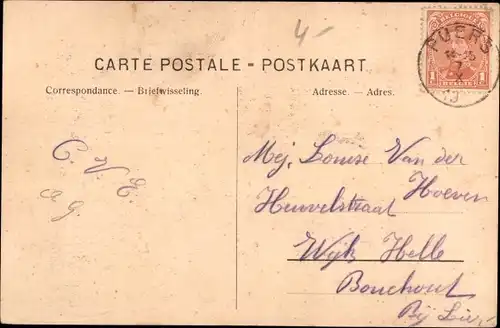 4-
BELGIQUE
PUERS
1 1
CARTE POSTALE - POSTKAART
Correspondance. — Briefwisseling.
Adresse. — Adres.
C. V. E.
Mej. Louise Van der
Hoeven
Heuvelstraat
Wijk Helle
Bouchout
Bij Lier